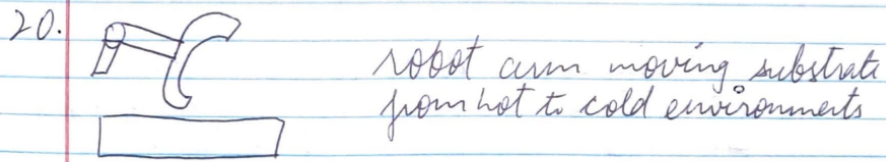 20.
robot arm moving substrate
from hot to cold environments